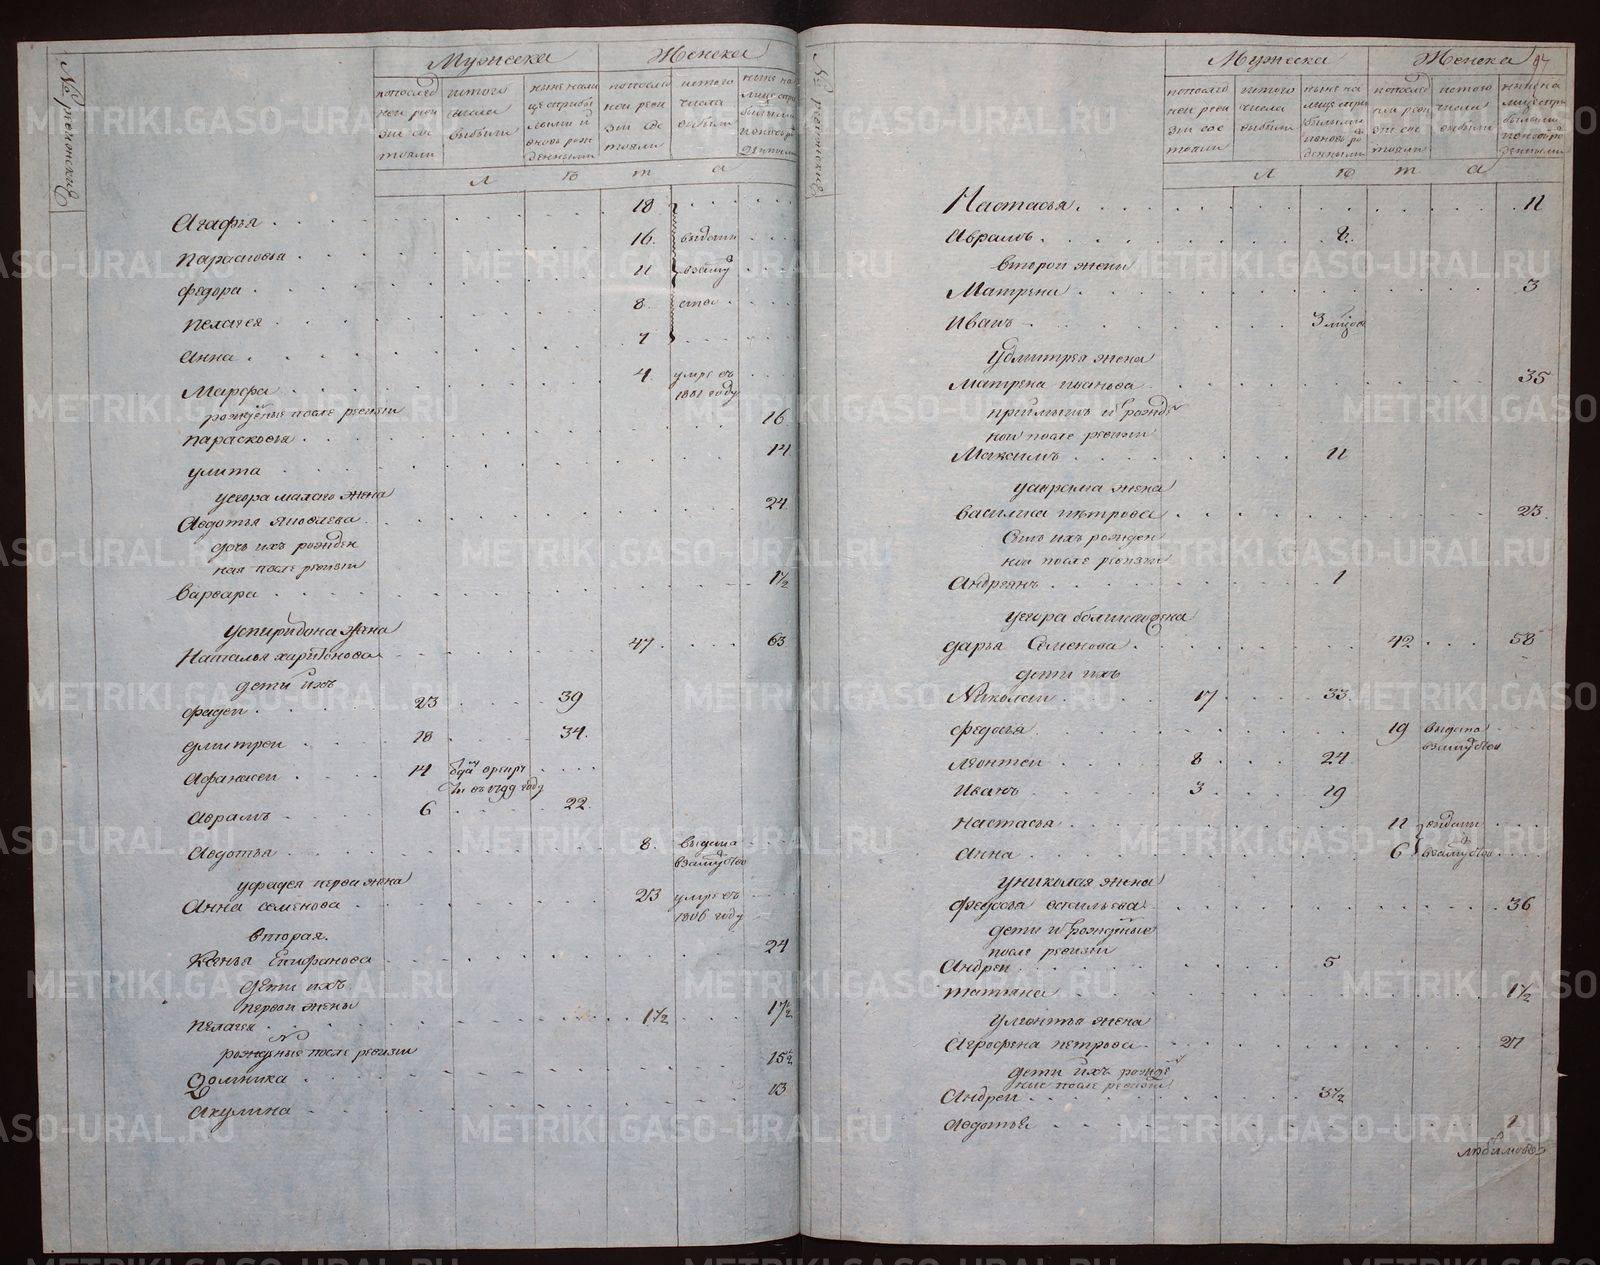 Мужеска Женска
№ ревонские
по последней ревизии состояли
исчого числа выбыли
ныне налице с прибылыми и вновь рожденными
по последней ревизии состояли
исчого числа выбыли
ныне налице с прибылыми и вновь рожденными
л ѣ т а
Агафья 18
Парасковья 16 выданы
Федора 11 взамуж
Пелагея 8 ство
Анна 7
Марфа 4 умре въ 1801 году
рожденые после ревизии
Парасковья 16
Улита 14
у егора малаго жена
Авдотья Яковлева 24
дочь ихъ рожден
ная после ревизии
Варвара 1½
у спиридона жена
Наталья харитонова 47 63
дети ихъ
Фадей 23 39
Дмитрей 18 34
Афанасей 14 въ 1799 году
Аврамъ 6 22
Авдотья 8 выдана взамуство
у фадея перва жена
Анна семенова 23 умре въ 1806 году
вторая
Ксенья Епифанова 24
дети ихъ
первой жены
Пелагея 1½ 17½
рожденые после ревизии
Домника 15½
Акулина 13
Мужеска Женска 97
№ ревонские
по последней ревизии состояли
исчого числа выбыли
ныне налице с прибылыми и вновь рожденными
по последней ревизии состояли
исчого числа выбыли
ныне налице с прибылыми и вновь рожденными
л ѣ т а
Настасья 11
Аврамъ 8
второй жены
Матрена 3
Иванъ 3
у дмитрея жена
Матрена иванова 35
приимышъ и рожде
ной после ревизии
Максимъ 11
у аврама жена
Василиса петрова 23
Сынъ ихъ рожден
ной после ревизии
Андреянъ 1
у егора большаго жена
Дарья Семенова 42 58
дети ихъ
Николай 17 33
Федосья 19 выдана взамуство
Леонтей 8 24
Иванъ 3 19
Настасья 11 выданы
Анна 6 взамуство
у николая жена
Федосья васильева 36
дети и рожденые
после ревизии
Андрей 5
Татьяна 1½
у леонтья жена
Агрофена петрова 27
дети ихъ рожде
ные после ревизии
Андрей 3½
Авдотья 1